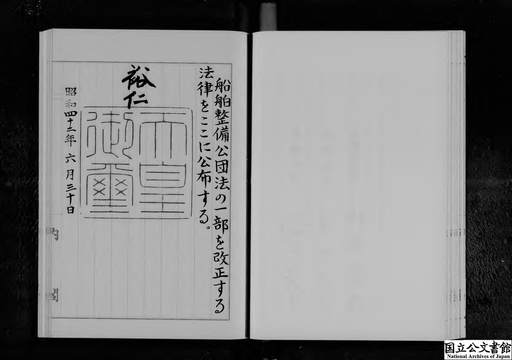 船舶整備公団法の一部を改正する
法律をここに公布する。
裕仁
天皇
御璽
昭和四十三年六月三十日
内閣
国立公文書館
National Archives of Japan